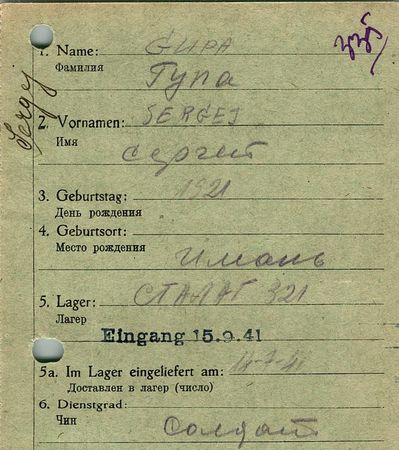 Sergej
335
1. Name: GUPA
Фамилия Гупа
2. Vornamen: SERGEJ
Имя Сергей
3. Geburtstag: 1921
День рождения
4. Geburtsort:
Место рождения Имань
5. Lager: СТАЛАГ 321
Лагер
Eingang 15.9.41
5a. Im Lager eingeliefert am:
Доставлен в лагер (число)
6. Dienstgrad:
Чин Солдат